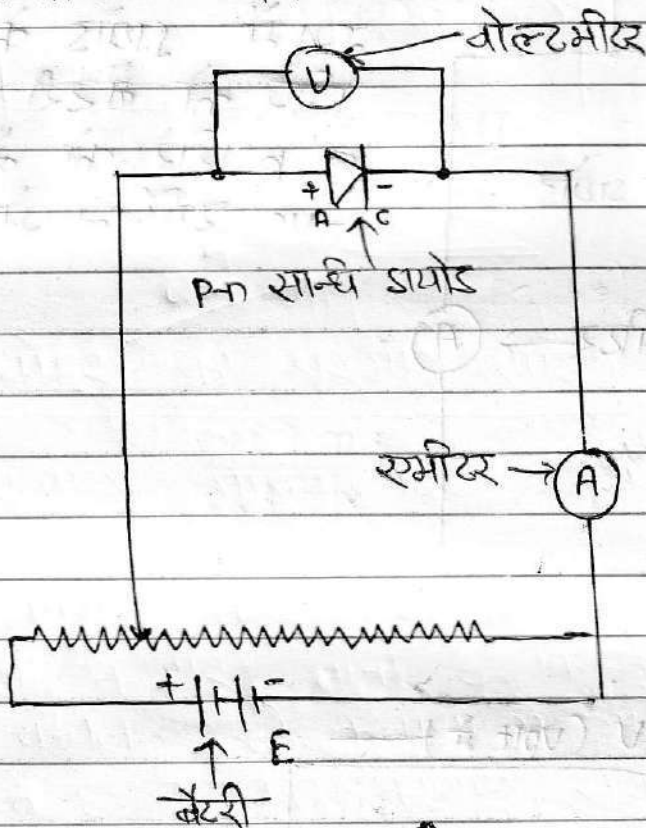 वोल्टमीटर
V
+ -
A C
P-n सान्ध डायोड
एमीटर → A
+ -
E
बैटरी